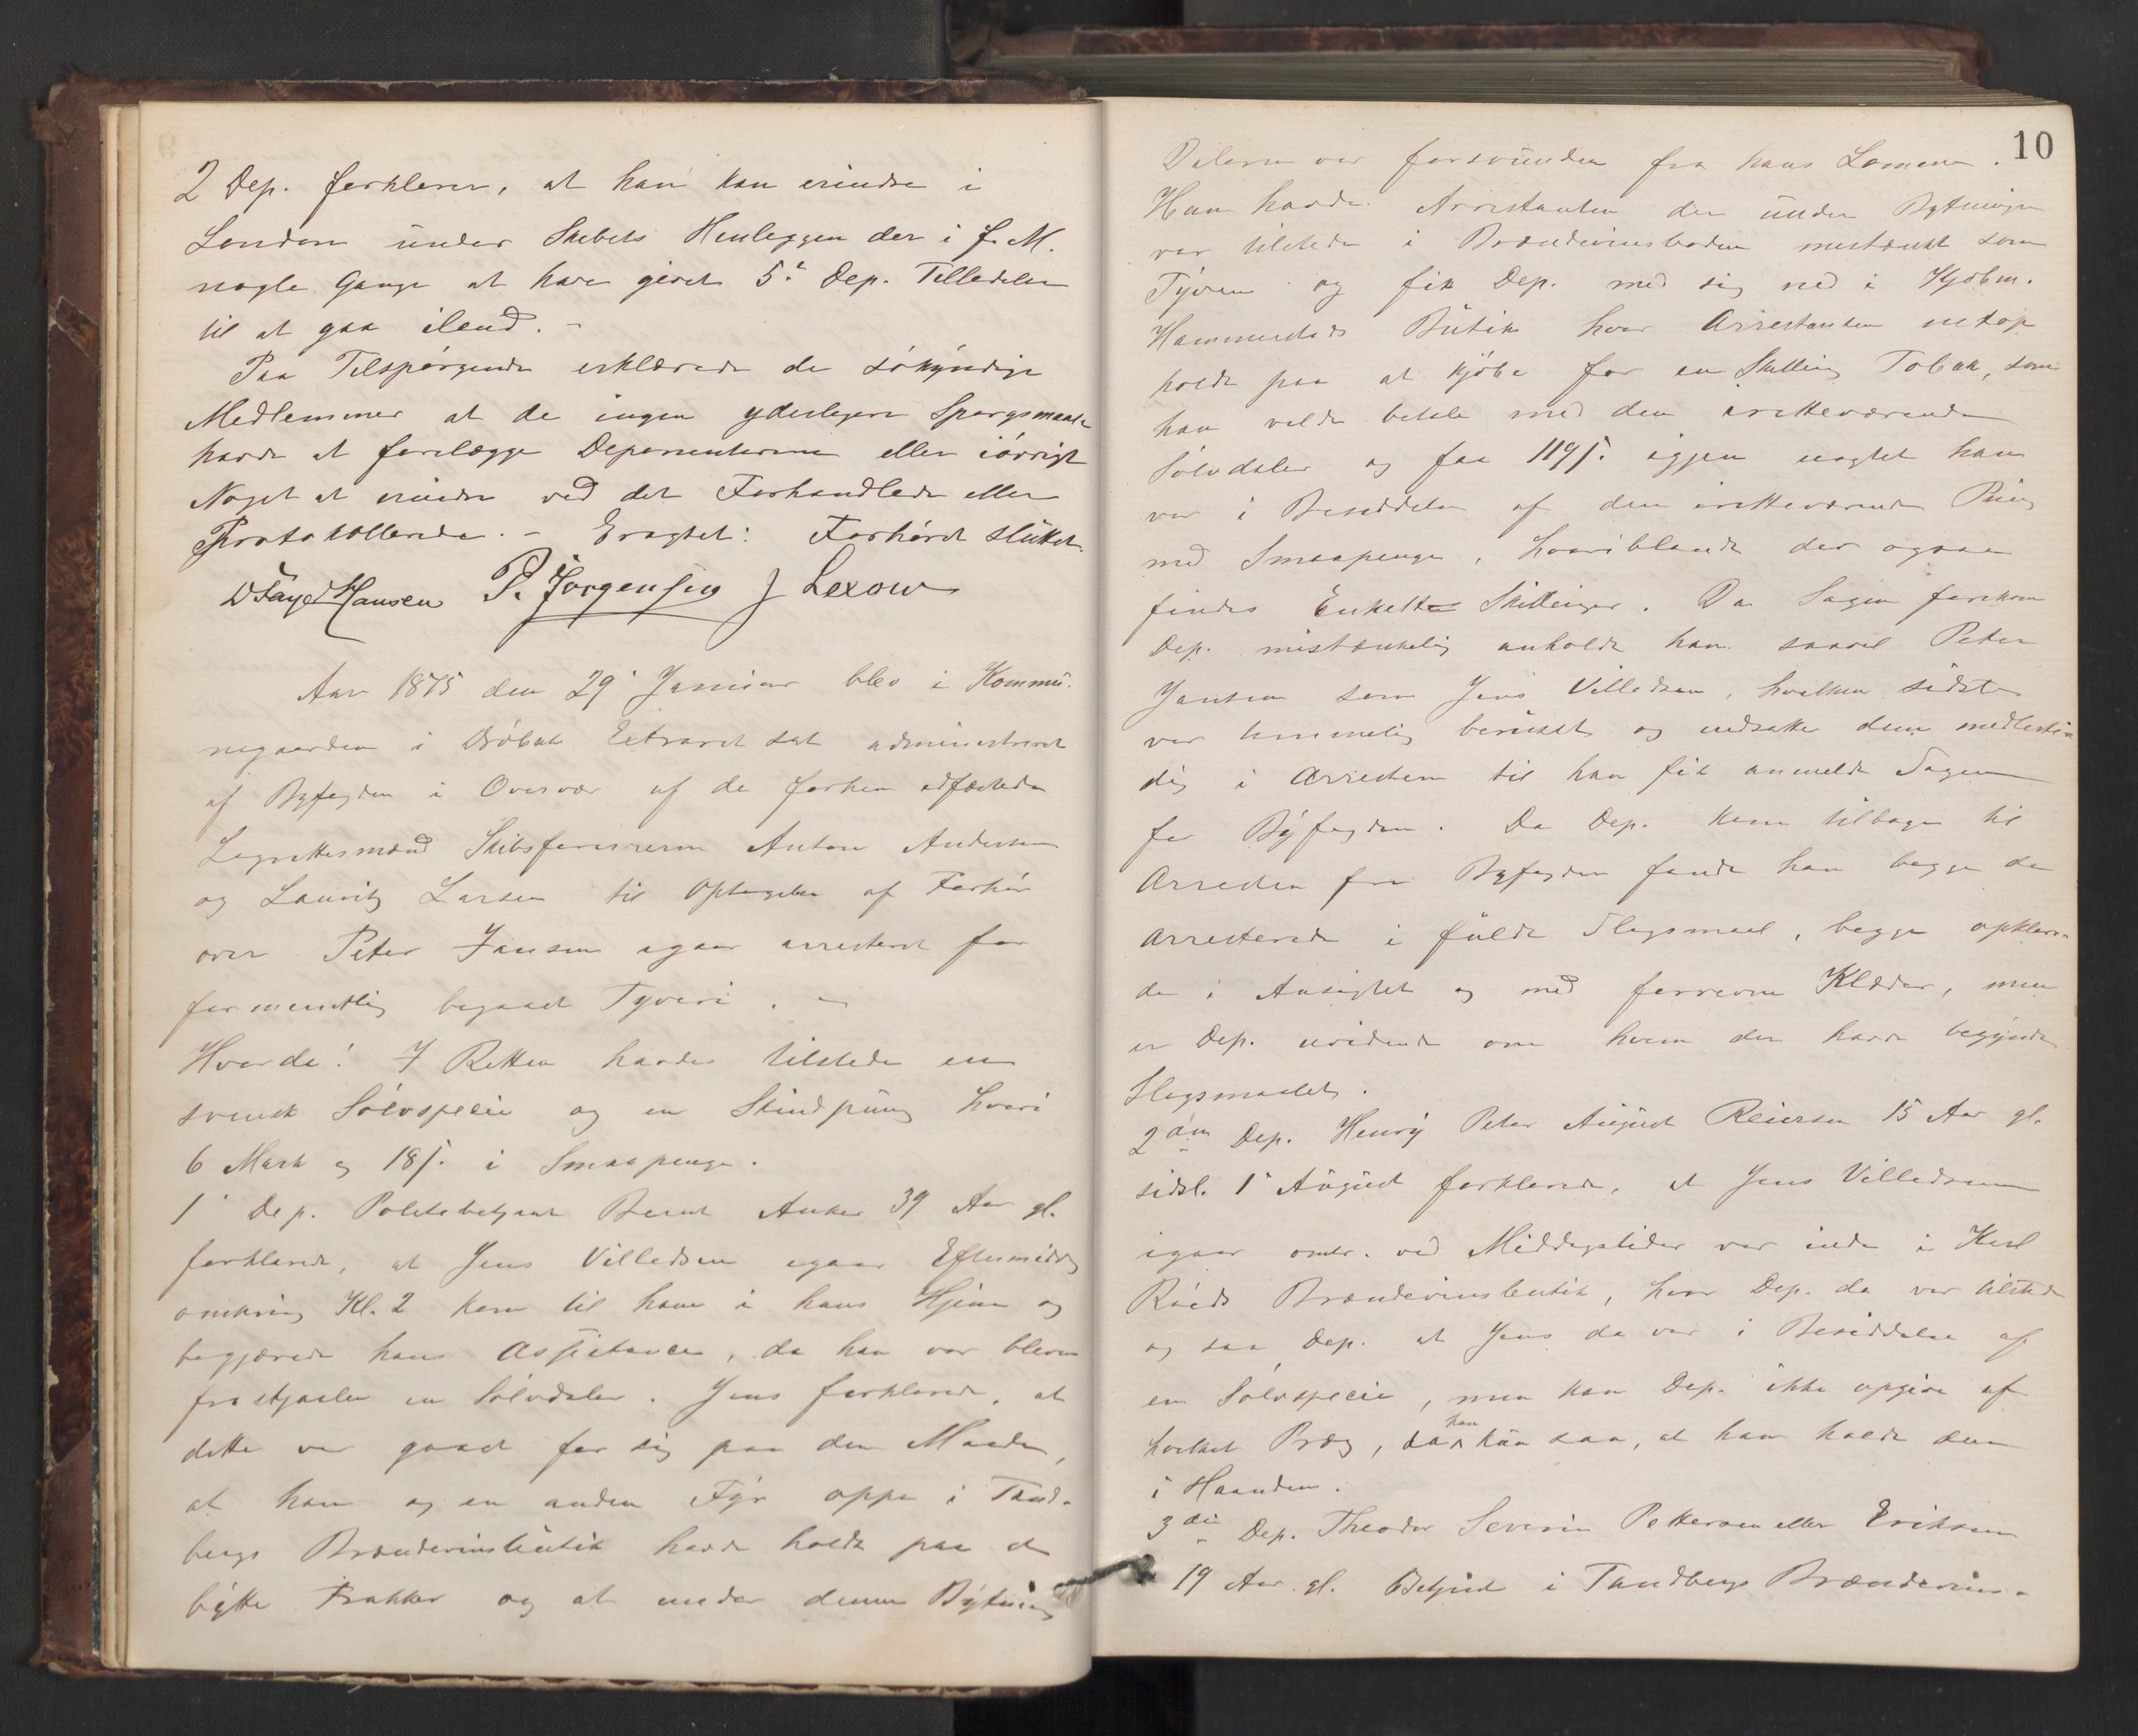 2 Dep. forklarer, at han kan erindre i
London under Skibets Henliggen der i f. M.
nogle Gange at have givet 5te Dep. Tilladelse
til at gaa iland. -
Paa Tilspørgende erklærede de søkyndige
Medlemmer at de ingen yderligere Spørgsmaale
havde at forelægge Deponenterne eller iøvrigt
Noget at erindre ved det Forhandlede eller
Protokollerede. - Eragtet: Forhøret sluttet.
Hansen P. Jørgensen J Lexow
Aar 1875 den 29' Januar blev i Kommu-
negaarden i Drøbak Extraret sat administreret
af Byfogden i Overvær af de forhen edfæstede
Lagrettesmænd Skibsførererne Anton Andersen
og Lauritz Larsen til Optagelse af Forhør
over Peter Jansen igaar arresteret for
formentlig begaaet Tyveri. -
Hvorda! I Retten havdes tilstede en
svensk Sølvspecie og en Skindpung hvori
6 Mark og 18 s. i Smaapenge.
1' Dep. Politibetjent Bernt Anker 39 Aar gl.
forklarede, at Jens Villadsen igaar Eftermiddag
omkring Kl. 2 kom til ham i hans Hjem og
begjærede hans Assistance, da han var bleven
frastjaalen en Sølvdaler. Jens forklarede, at
dette var gaaet for sig paa den Maade,
at han og en anden Fyr oppe i Tand-
bergs Brændevinsbutik havde holdt paa at
bytte Frakker og at under denne Bytning
10
Daleren var forsvunden fra hans Lomme.
Han havde Arrestanten der under Bytningen
var tilstede i Brændevinsboden mistænkt som
Tyven og fik Dep. med sig ned i Kjøbm.
Hammerstads Butik hvor Arrestanten netop
holdt paa at kjøbe for en Skilling Tobak, som
han vilde betale med den iretteværende
Sølvdaler og faa 119 s. igjen uagtet han
var i Besiddelse af den iretteværende Pung
med Smaapenge, hvoriblandt der ogsaa
findes Enkelte Skillinger. Da Sagen forekom
Dep. mistænkelig anholdt han saavel Peter
Jansen som Jens Villadsen, hvilken sidste
var temmelig beruset og indsatte dem midlerti-
dig i Arresten til han fik anmeldt Sagen
for Byfogden. Da Dep. kom tilbage til
Arresten fra Byfogden fandt han begge de
Arresterede i fuldt Slagsmaal, begge opklore-
de i Ansigtet og med forrevne Klæder, men
er Dep. uvidende om hvem der havde begyndt
Slagsmaalet.
2den Dep. Henry Peter August Reiersen 15 Aar gl.
sidstl. 1' August forklarede, at Jens Villadsen
igaar omtr. ved Middagstider var inde i Karl
Røeds Brændevinsbutik, hvor Dep. da var tilstede
og saa Dep. at Jens da var i Besiddelse af
en Sølvspecie, men kan Dep. ikke opgive af
hvilket Præg, da han kun saa, at han holdt den
i Haanden.
3die Dep. Theodor Severin Pettersen eller Eriksen
19 Aar gl. Betjent i Tandbergs Brændevins-